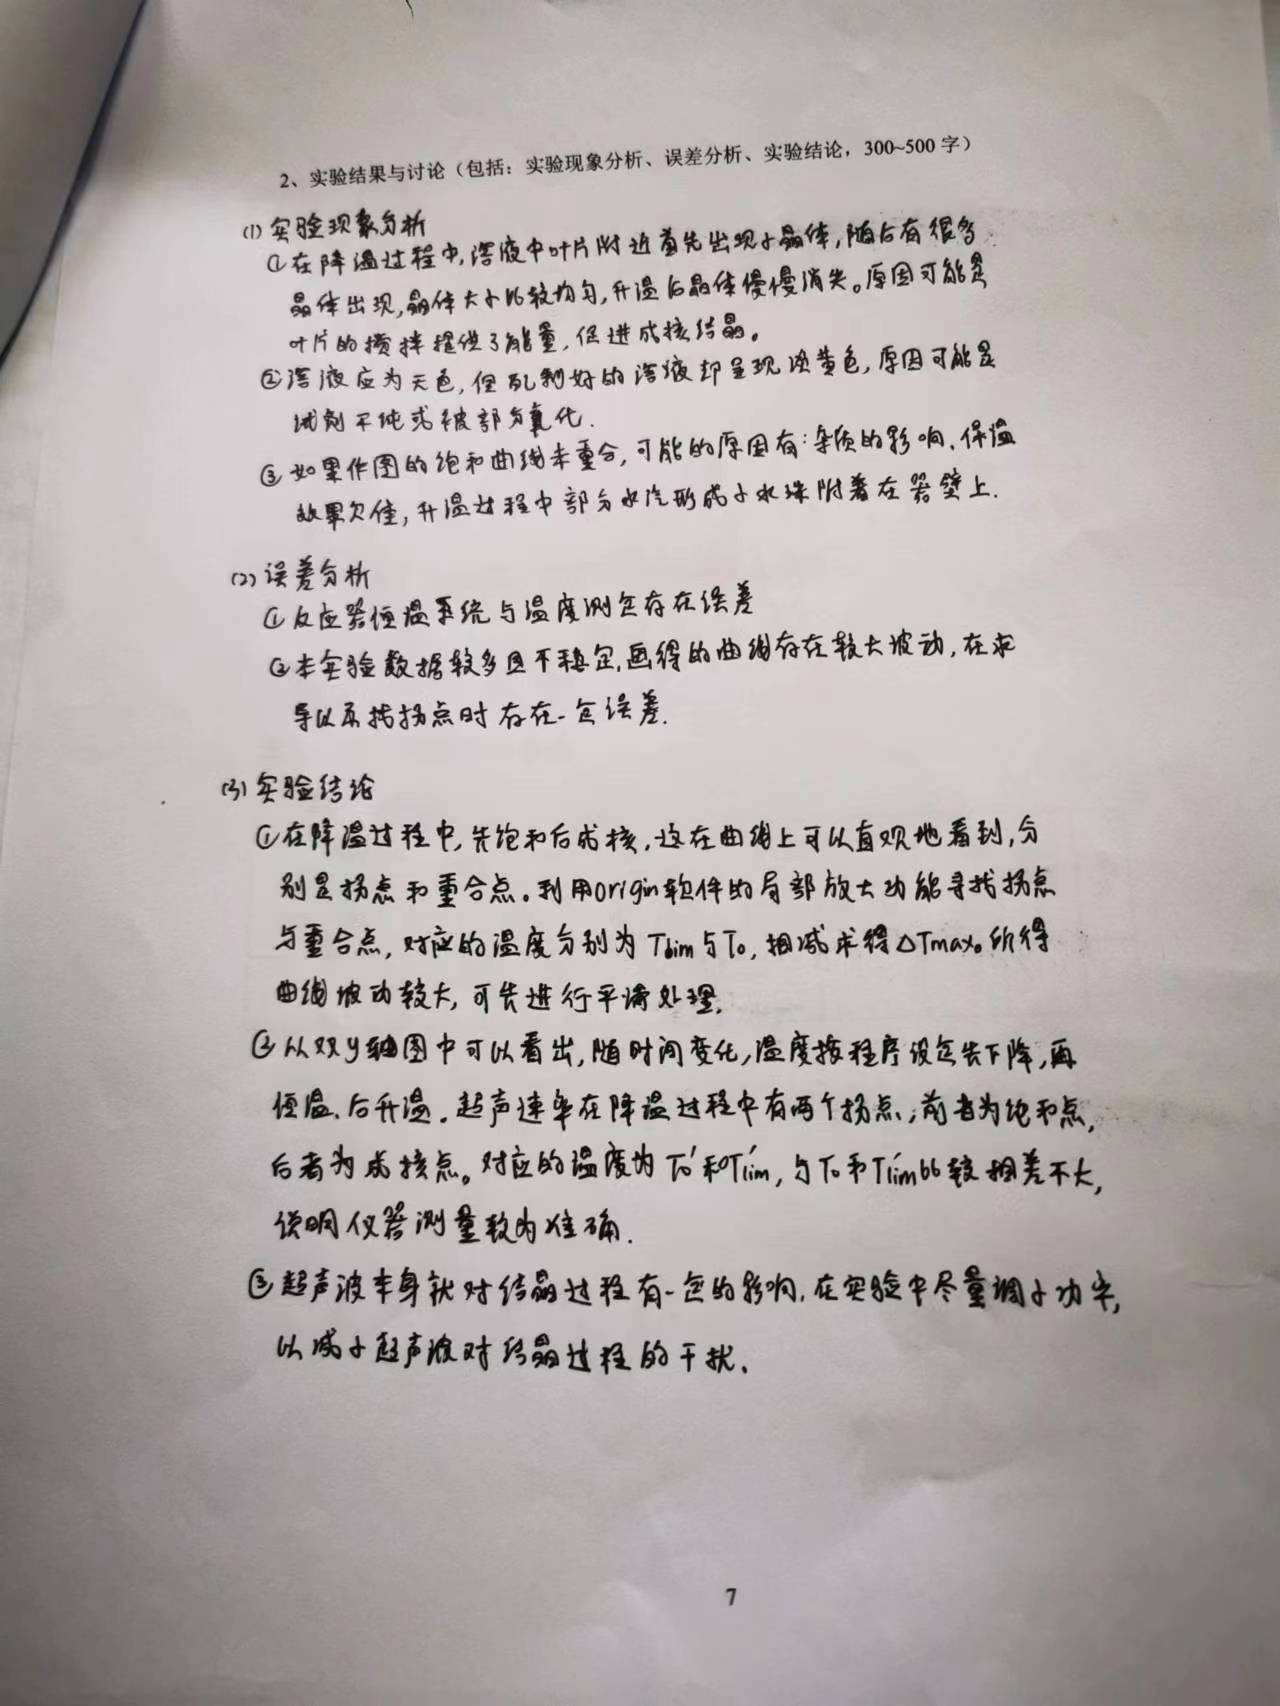 2、实验结果与讨论（包括：实验现象分析、误差分析、实验结论，300~500 字）
(1) 实验现象分析
①在降温过程中,溶液中叶片附近首先出现小晶体,随后有很多
晶体出现,晶体大小比较均匀,升温后晶体慢慢消失。原因可能是
叶片的搅拌提供了能量,促进成核结晶。
②溶液应为无色,但配制好的溶液却呈现淡黄色,原因可能是
试剂不纯或被部分氧化.
③如果作图的饱和曲线未重合,可能的原因有:杂质的影响、保温
效果欠佳,升温过程中部分水汽形成小水珠附着在器壁上.
(2) 误差分析
①反应器恒温系统与温度测定存在误差
②本实验数据较多且不稳定,画得的曲线存在较大波动,在求
导以及找拐点时存在一定误差.
(3) 实验结论
①在降温过程中,先饱和后成核,这在曲线上可以直观地看到,分
别是拐点和重合点。利用origin软件的局部放大功能寻找拐点
与重合点,对应的温度分别为Tlim与T0,相减求得△Tmax。所得
曲线波动较大,可先进行平滑处理.
②从双y轴图中可以看出,随时间变化,温度按程序设定先下降,再
恒温、后升温.超声速率在降温过程中有两个拐点,前者为饱和点,
后者为成核点。对应的温度为T0′和Tlim′,与T0和Tlim比较相差不大,
说明仪器测量较为准确.
③超声波本身就对结晶过程有一定的影响,在实验中尽量调小功率,
以减小超声波对结晶过程的干扰.
7